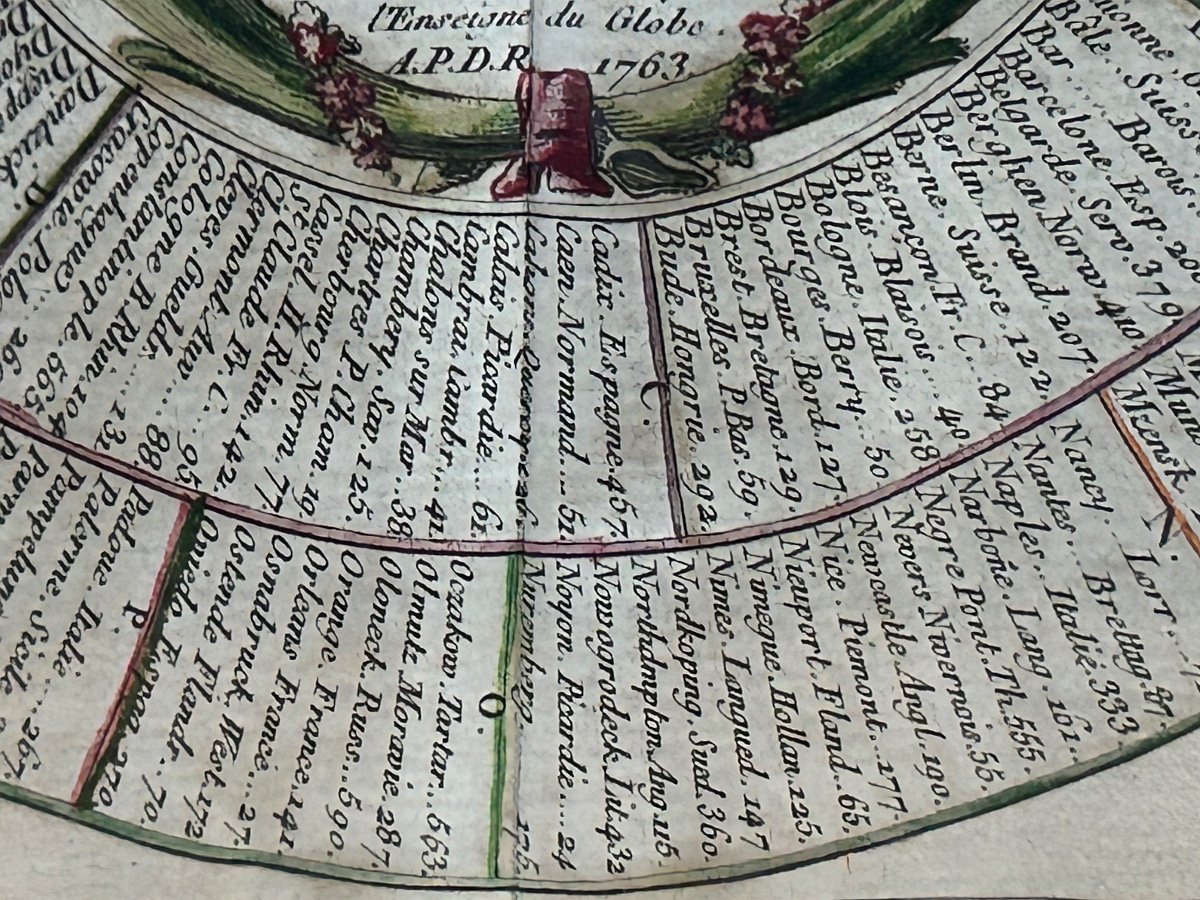 l'Enseigne du Globe.
A.P.D.R. 1763
Bâle. Suiss
Bar..... Barois
Barcelone. Esp. 20
Belgarde. Serv. 379
Berghen. Norw. 410
Berlin. Brand. 207.
Berne. Suisse. 122.
Besançon. Fr. C... 84.
Blois. Blaisois.... 40
Bologne. Italie. 258
Bourges. Berry... 50.
Bordeaux. Bord. 127.
Brest. Bretagne. 129.
Bruxelles. P. Bas. 59.
Bude. Hongrie. 292.
C.
Cadix. Espagne. 457.
Caen. Normand.... 51.
Calais. Picardie... 61.
Cambrai. Cambr... 41
Chalons sur Mar.. 38.
Chambery. Sav. 125.
Chartres. P Cham. 19.
Cherbourg. Norm. 77.
Cassel. H. Rhin. 142.
St. Claude. Fr. C...
Clermont. Auv.... 95
Cleves. Gueld.... 88.
Cologne. B. Rhin.... 131
Constantinople. 565.
Copenhague
Cracovie. Polo
D.
Dantzick.
Diepp
Meensk.
N.
Nancy. Lorr.
Nantes... Brettng. 87.
Naples.. Italie. 333
Narbone. Lang. 161.
Negre Pont. Th. 555.
Nevers. Nivernois. 55.
Newcastle. Angl. 190.
Nice. Piemont... 177.
Nieuport. Fland.. 65.
Nimegue. Hollan. 125.
Nimes. Langued. 147
Nordkoping. Sued. 360.
Northampton. Ang. 115.
Nowogrodeck. Lit. 432
Noyon. Picardie.... 24
Nuremberg. 175.
O.
Oczakow. Tartar... 563.
Olmutz. Moravie. 287.
Oloneck. Russ.... 590.
Orange. France. 141.
Orleans. France... 27.
Osnabruck. West. 172.
Ostende. Flandr... 70.
Oviedo. Espag. 270.
P.
Padoue. Italie....
Palerme. Sicile
Pampelune